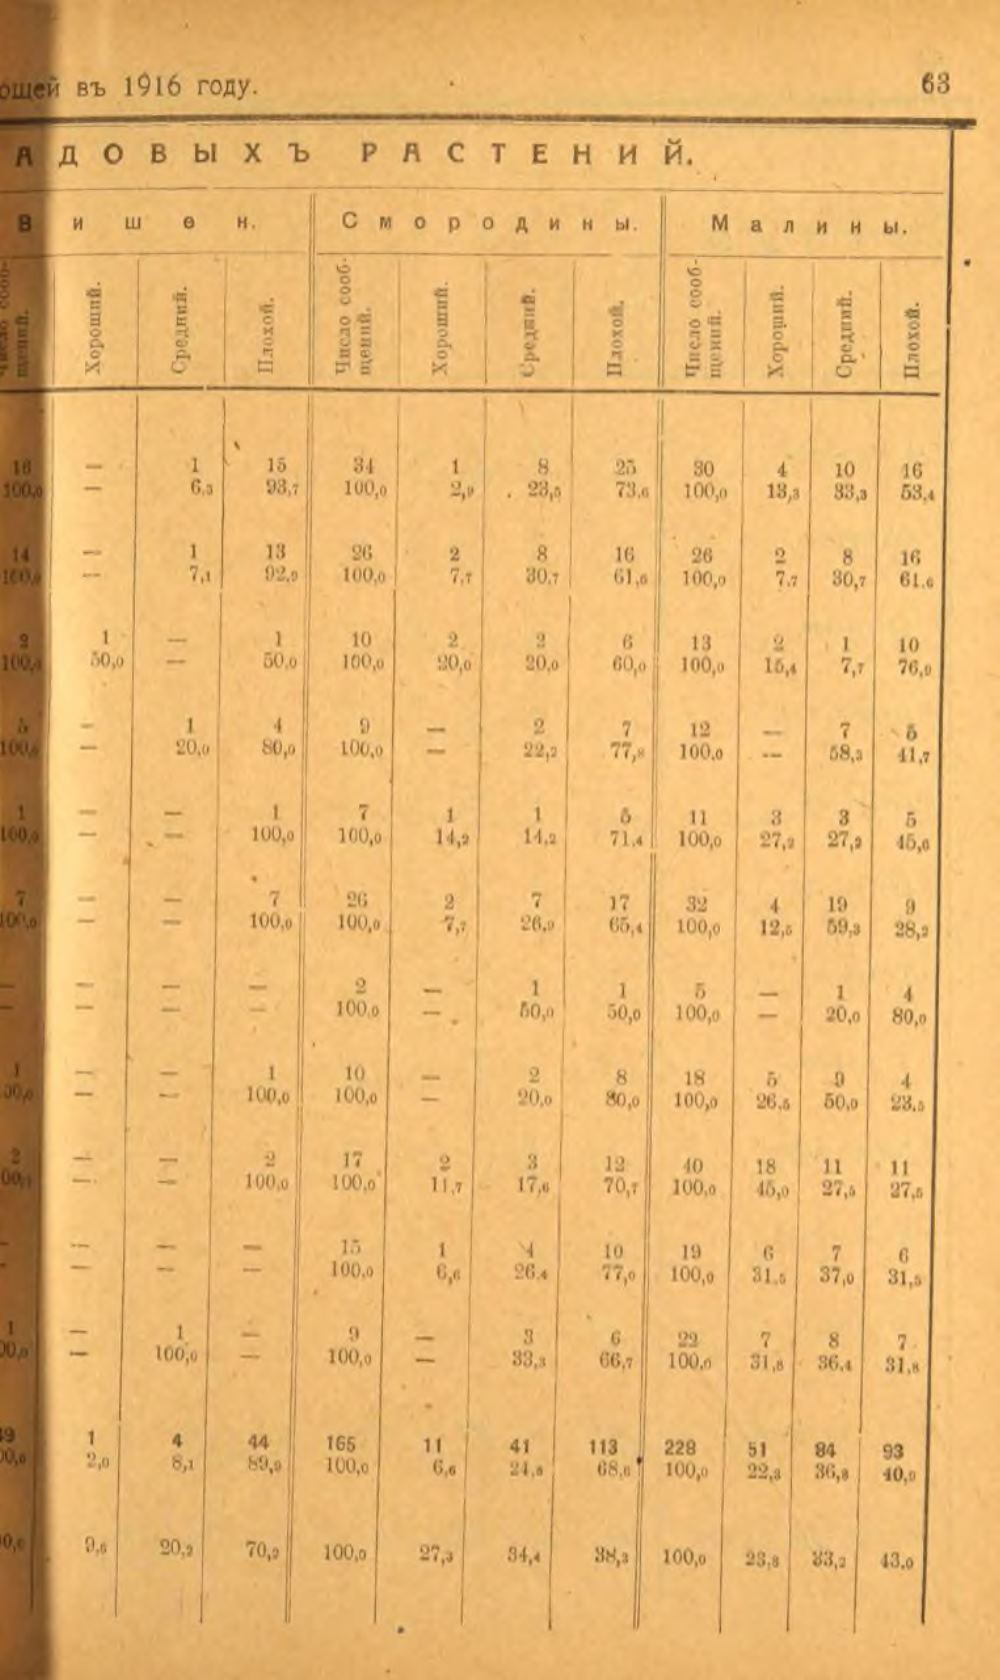 ощей въ 1916 году. 63
АДОВЫХЪ РАСТЕНІЙ.
Вишен. Смородины. Малины.
Число сообщеній. Хорошій. Средній. Плохой. Число сооб- щеній. Хорошій. Средній. Плохой. Число сооб- щеній. Хорошій. Средній. Плохой.
16 — 1 15 34 1 8 25 30 4 10 16
100,0 — 6,3 93,7 100,0 2,9 23,5 73,6 100,0 13,3 33,3 53,4
14 — 1 13 26 2 8 16 26 2 8 16
100,0 — 7,1 92,9 100,0 7,7 30,7 61,6 100,0 7,7 30,7 61,6
2 1 — 1 10 2 2 6 13 2 1 10
100,0 50,0 — 50,0 100,0 20,0 20,0 60,0 100,0 15,4 7,7 76,9
5 — 1 4 9 — 2 7 12 — 7 5
100,0 — 20,0 80,0 100,0 — 22,2 77,8 100,0 — 58,3 41,7
1 — — 1 7 1 1 5 11 3 3 5
100,0 — — 100,0 100,0 14,2 14,2 71,4 100,0 27,2 27,2 45,6
7 — — 7 26 2 7 17 32 4 19 9
100,0 — — 100,0 100,0 7,7 26,9 65,4 100,0 12,5 59,3 28,2
— — — — 2 — 1 1 5 — 1 4
— — — — 100,0 — 50,0 50,0 100,0 — 20,0 80,0
1 — — 1 10 — 2 8 18 5 9 4
00,0 — — 100,0 100,0 — 20,0 80,0 100,0 26,5 50,0 23,5
2 — — 2 17 2 3 12 40 18 11 11
00,0 — — 100,0 100,0 11,7 17,6 70,7 100,0 45,0 27,5 27,5
— — — — 15 1 4 10 19 6 7 6
— — — 100,0 6,6 26,4 77,0 100,0 31,5 37,0 31,5
1 — 1 — 9 — 3 6 22 7 8 7
00,0 — 100,0 — 100,0 — 33,3 66,7 100,0 31,8 36,4 31,8
49 1 4 44 165 11 41 113 228 51 84 93
00,0 2,0 8,1 89,9 100,0 6,6 24,8 68,6 100,0 22,3 36,8 40,9
00,0 9,6 20,2 70,2 100,0 27,3 34,4 38,3 100,0 23,8 33,2 43,0